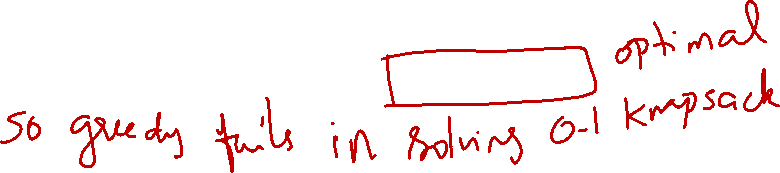 optimal
so greedy fails in solving 0-1 knapsack